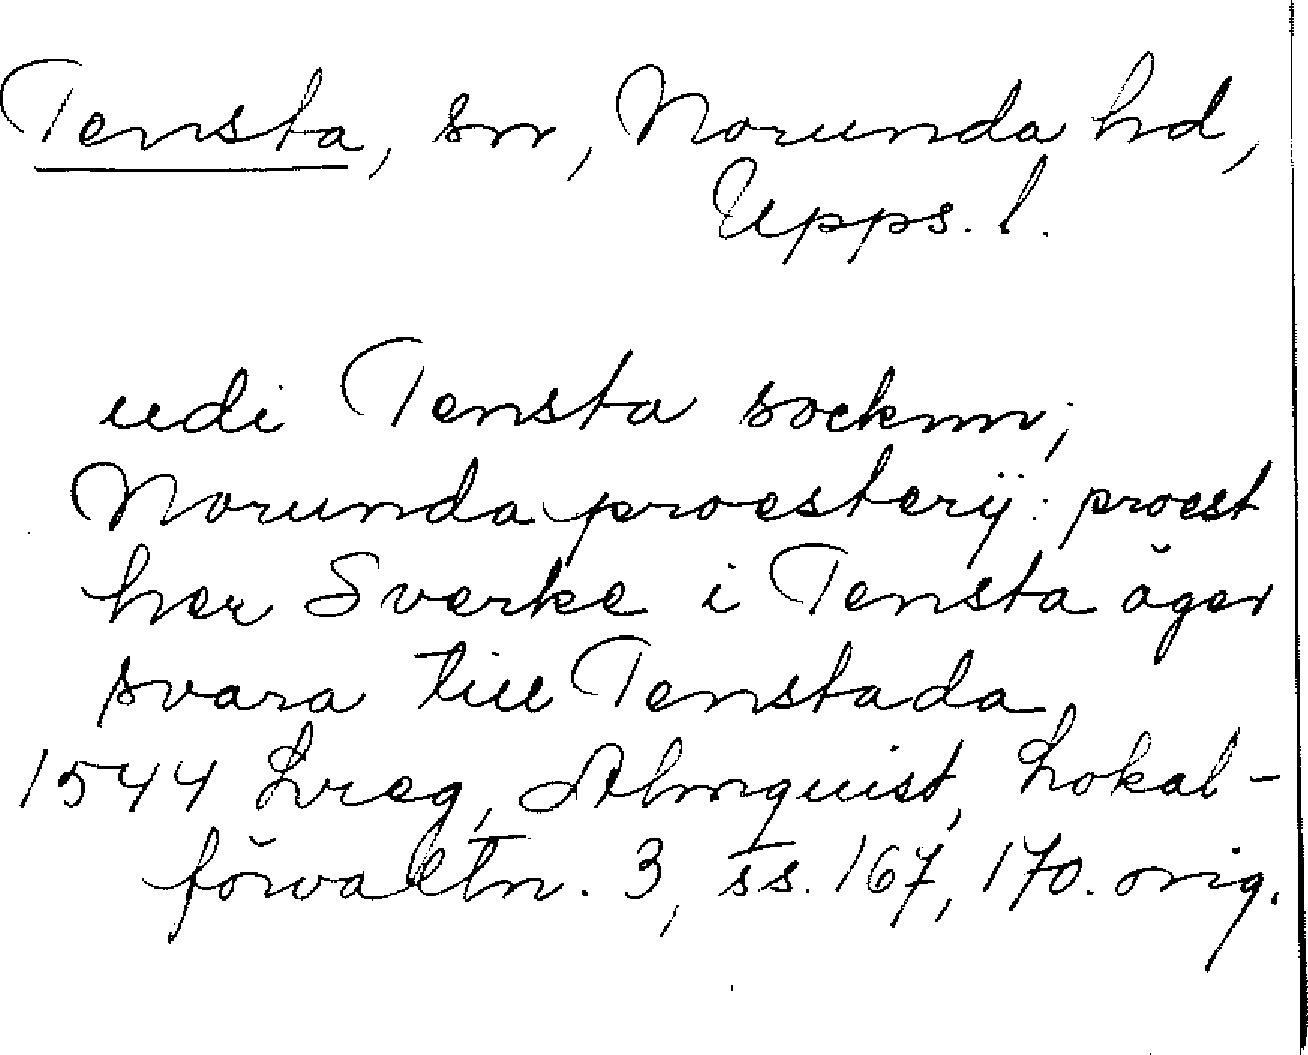 Tensta, sn, Norunda hd,
Upps. l.
udi Tensta socknn;
Norunda proesterij: proest
her Sverke i Tensta äger
svara till Tenstada
1544 Lreg, Almquist, Lokal-
förvaltn. 3, ss. 167, 170. orig.